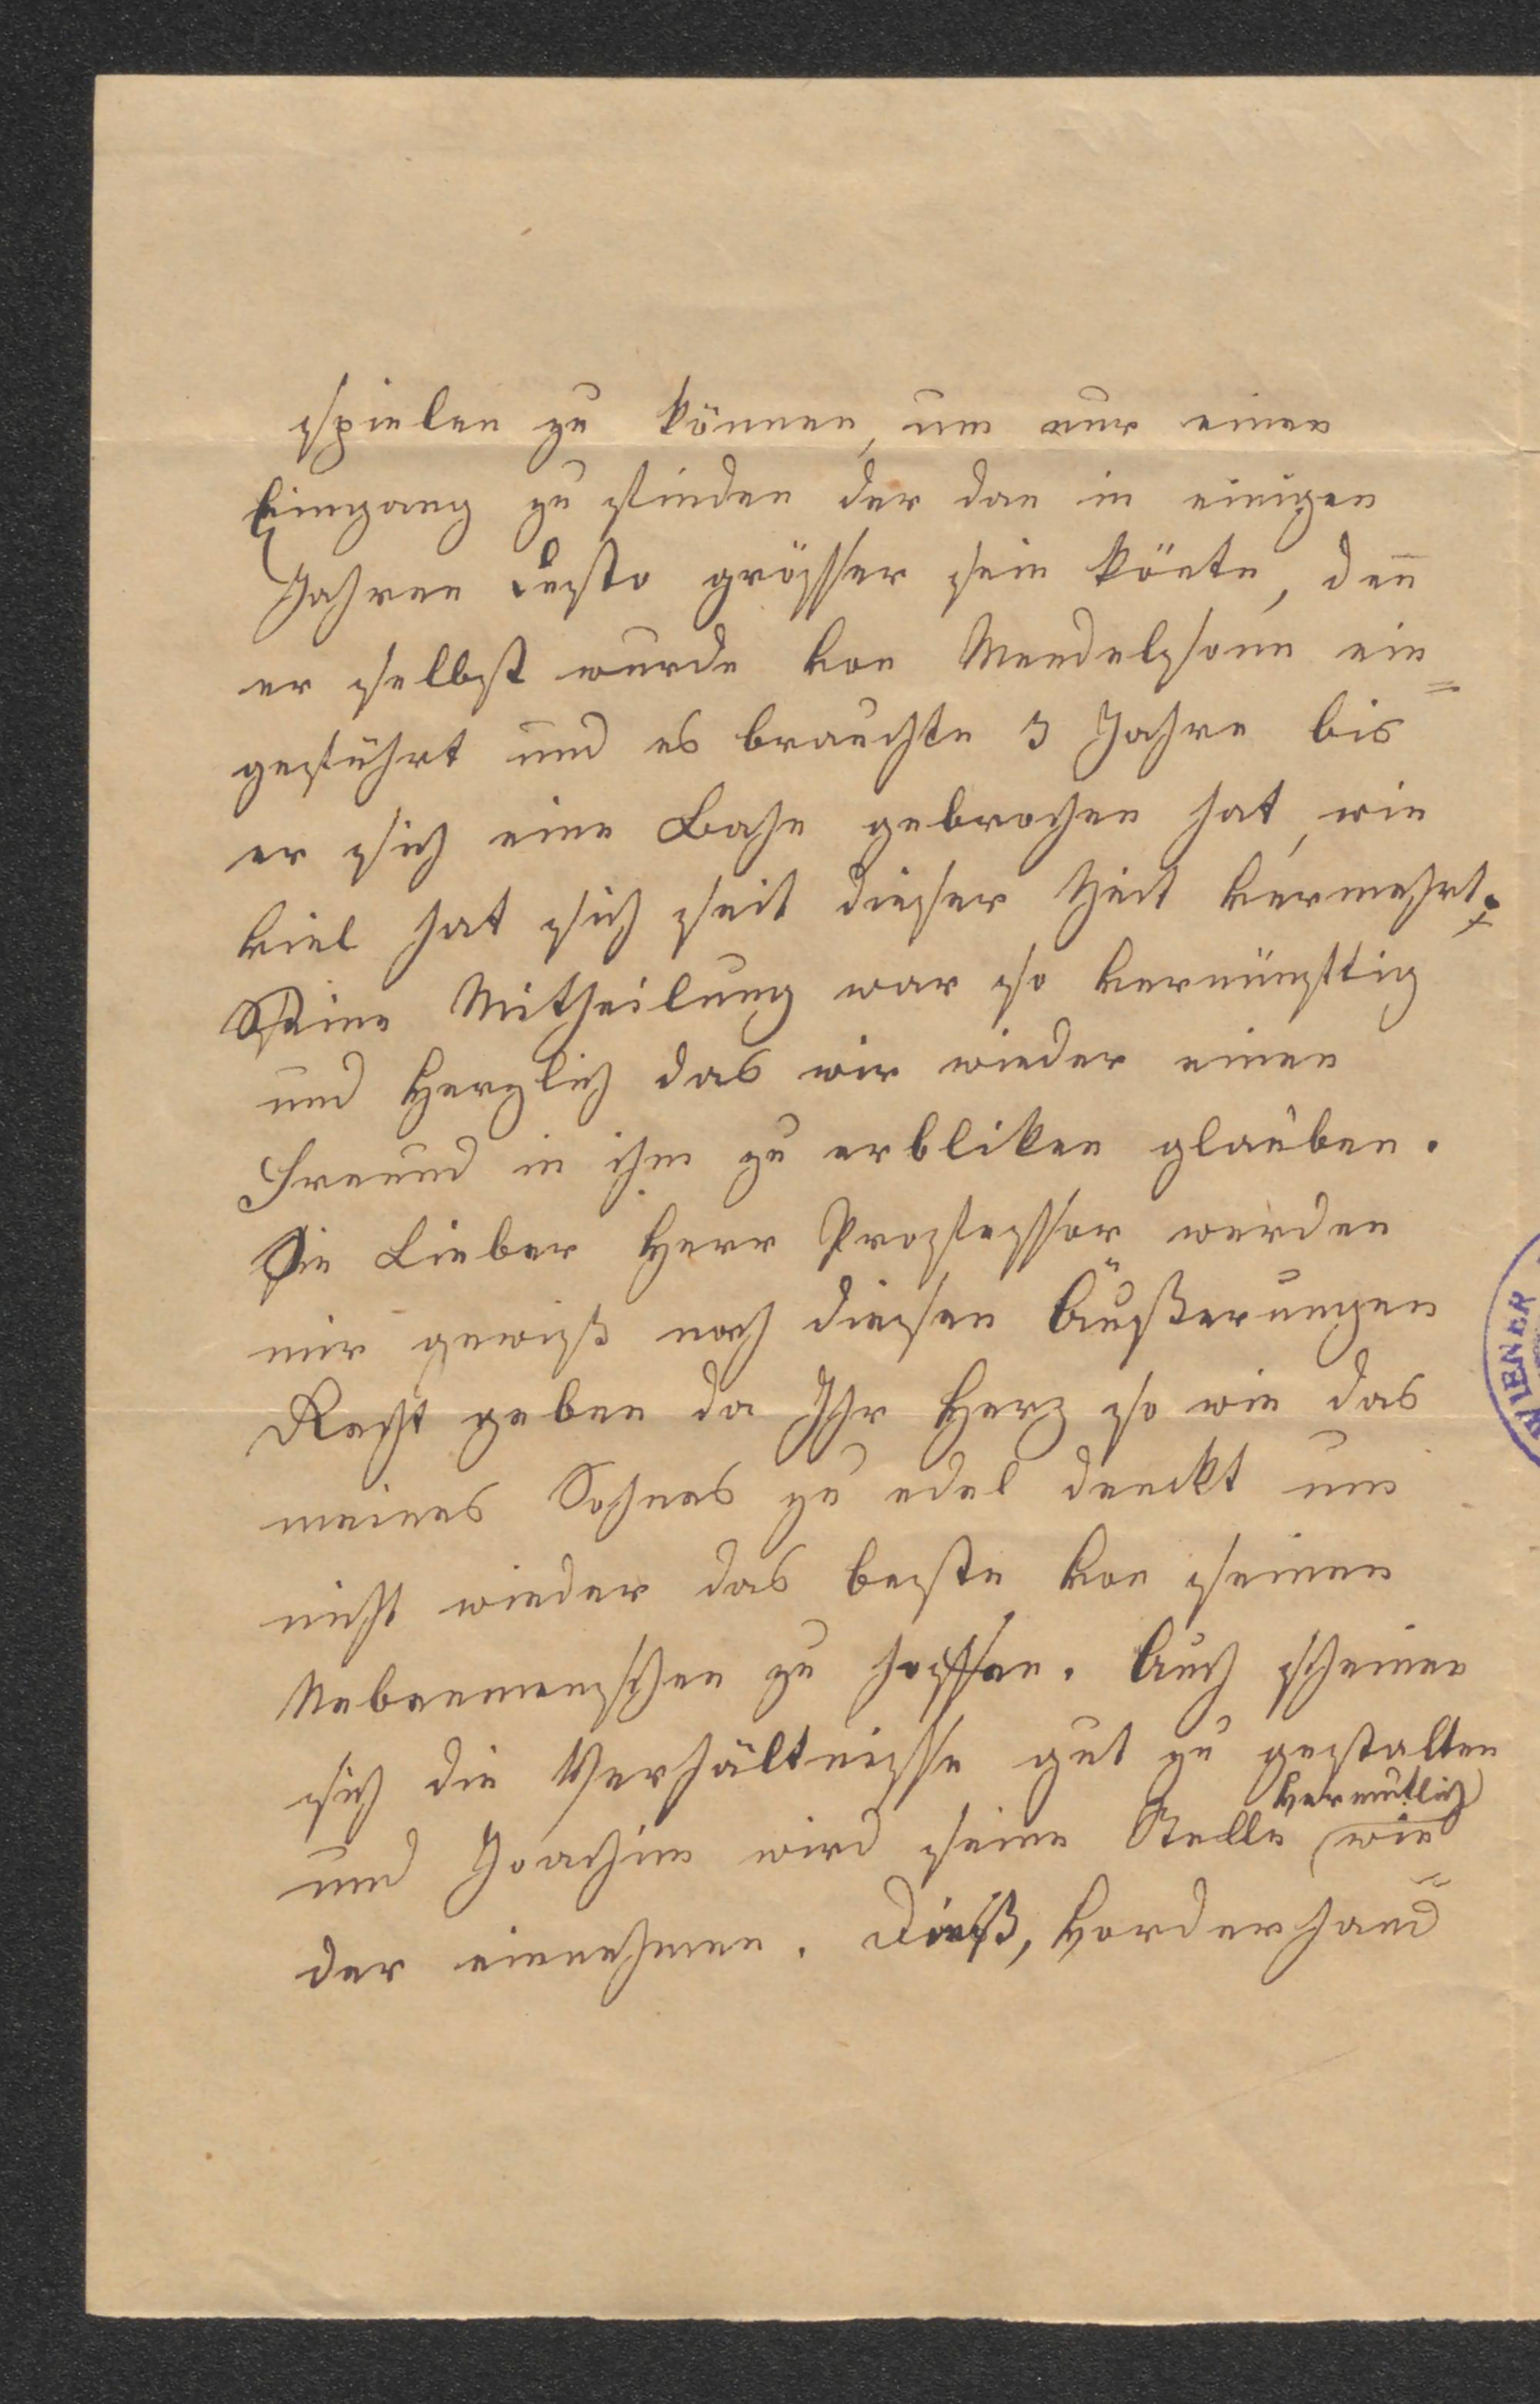 spielen zu können, um nur einen
Eingang zu finden der dan in einigen
Jahren desto grösser sein könte, den̅
er selbst wurde von Mendelsonn ein=
geführt und es brauchte 3 Jahre bis
er sich eine Bahn gebrochen hat, wie
viel hat sich seit dieser Zeit vermehrt.
Seine Mittheilung war so vernünftig
und Herzlich das wir wieder einen
Freund in ihm zu erbliken glauben.
Sie Lieber Herr Professor werden
mir gewiß nach diesen Äußerungen
Recht geben da Ihr Herz so wie das
meines Sohnes zu edel denckt um
nicht wieder das beste von seinen
Nebenmenschen zu hoffen. Auch scheinen
sich die Verhältnisse gut zu gestalten
vermutlich
und Joachim wird seine Stelle wie=
der einnehmen. Dieß, Vorderhand
WIENER